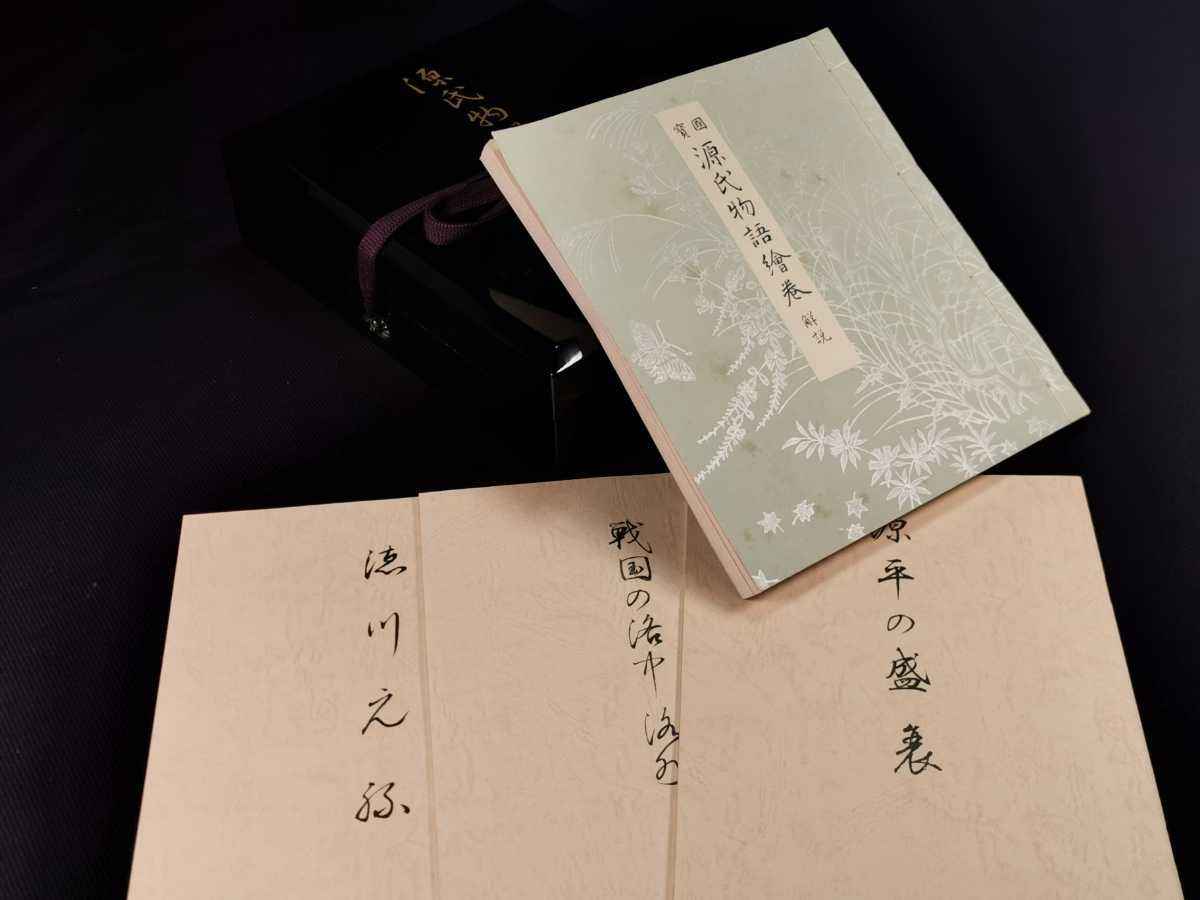 源氏物
國寶
源氏物語繪卷
解説
源平の盛衰
戦国の洛中洛外
徳川元禄